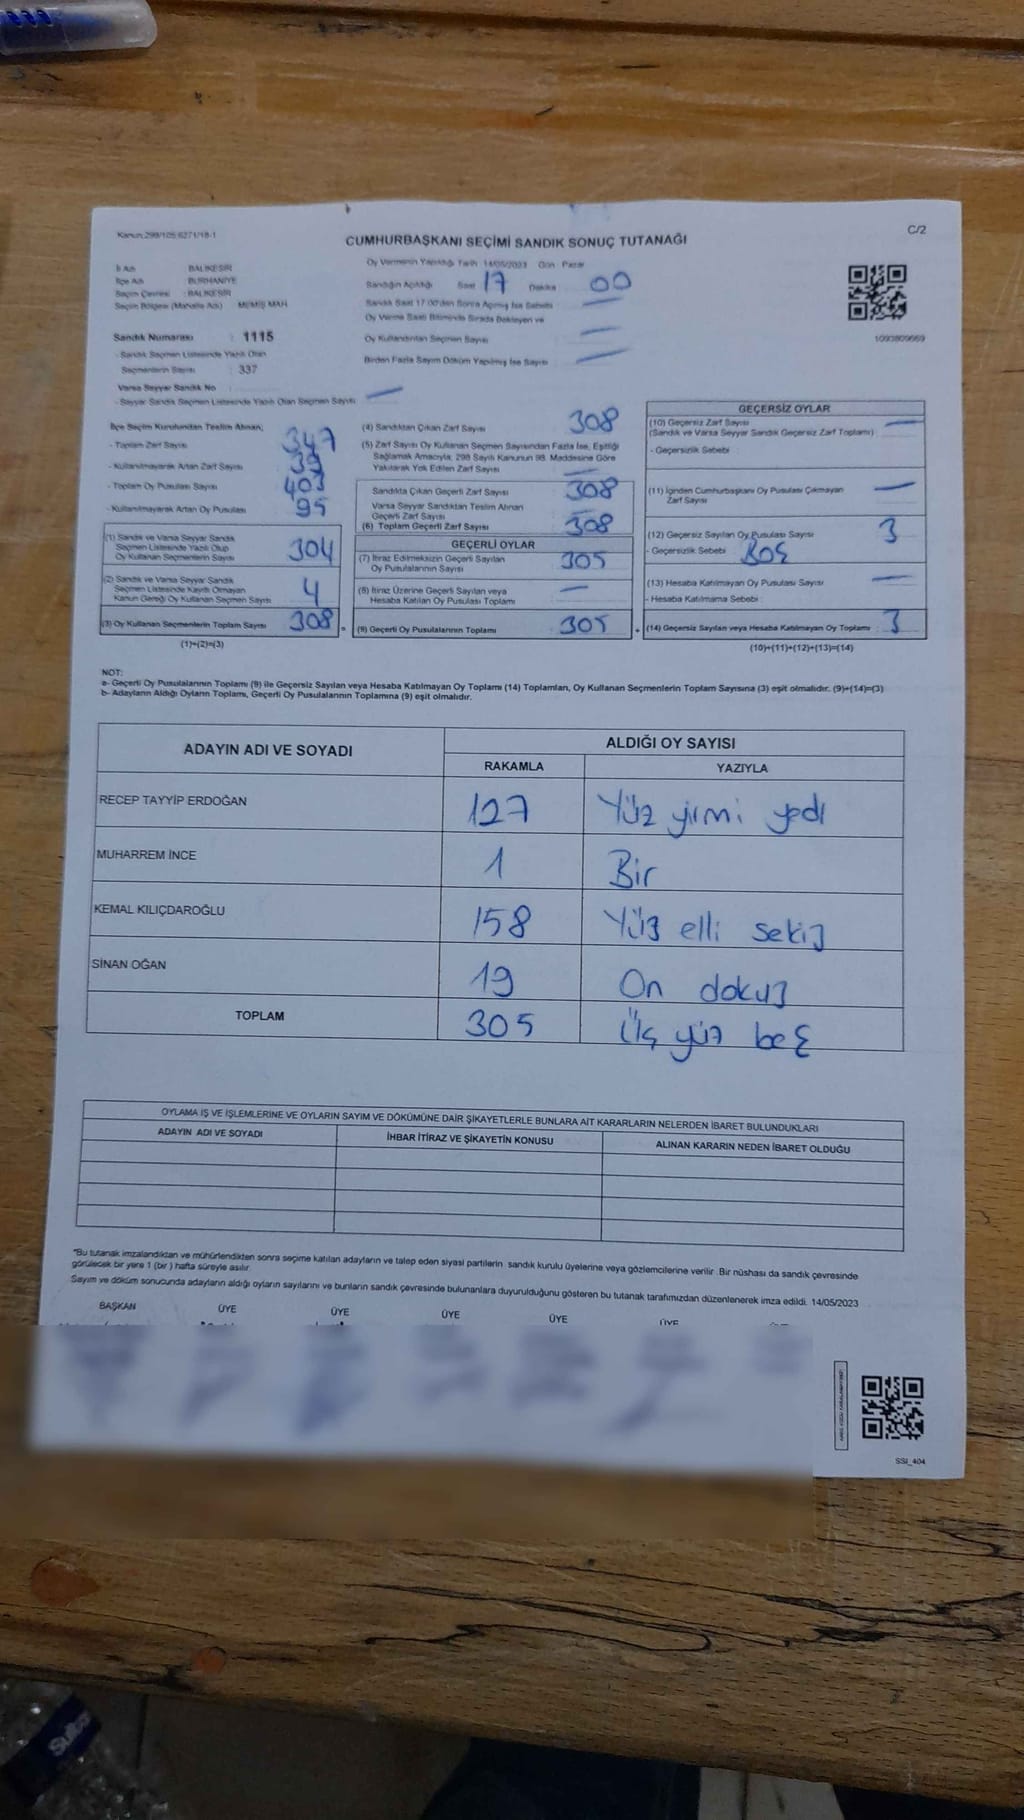 Kanun:298/105 6271/18-1
C/2
CUMHURBAŞKANI SEÇİMİ SANDIK SONUÇ TUTANAĞI
İl Adı BALIKESİR
İlçe Adı BURHANİYE
Seçim Çevresi : BALIKESİR
Seçim Bölgesi (Mahalle Adı) : MEMİŞ MAH
Sandık Numarası : 1115
- Sandık Seçmen Listesinde Yazılı Olan
Seçmenlerin Sayısı 337
Varsa Seyyar Sandık No
- Seyyar Sandık Seçmen Listesinde Yazılı Olan Seçmen Sayısı —
Oy Vermenin Yapıldığı Tarih 14/05/2023 Gün Pazar
Sandığın Açıldığı Saat 17 Dakika 00
Sandık Saat 17.00'den Sonra Açılmış İse Sebebi —
Oy Verme Saati Bitiminde Sırada Bekleyen ve
Oy Kullandırılan Seçmen Sayısı —
Birden Fazla Sayım Döküm Yapılmış İse Sayısı —
1093809669
İlçe Seçim Kurulundan Teslim Alınan;
- Toplam Zarf Sayısı 347
- Kullanılmayarak Artan Zarf Sayısı 39
- Toplam Oy Pusulası Sayısı 403
- Kullanılmayarak Artan Oy Pusulası 95
(1) Sandık ve Varsa Seyyar Sandık
Seçmen Listesinde Yazılı Olup
Oy Kullanan Seçmenlerin Sayısı 304
(2) Sandık ve Varsa Seyyar Sandık
Seçmen Listesinde Kayıtlı Olmayan
Kanun Gereği Oy Kullanan Seçmen Sayısı 4
(3) Oy Kullanan Seçmenlerin Toplam Sayısı 308 =
(1)+(2)=(3)
(4) Sandıktan Çıkan Zarf Sayısı 308
(5) Zarf Sayısı Oy Kullanan Seçmen Sayısından Fazla İse, Eşitliği
Sağlamak Amacıyla, 298 Sayılı Kanunun 98. Maddesine Göre
Yakılarak Yok Edilen Zarf Sayısı —
Sandıkta Çıkan Geçerli Zarf Sayısı 308
Varsa Seyyar Sandıktan Teslim Alınan
Geçerli Zarf Sayısı —
(6) Toplam Geçerli Zarf Sayısı 308
GEÇERLİ OYLAR
(7) İtiraz Edilmeksizin Geçerli Sayılan
Oy Pusulalarının Sayısı 305
(8) İtiraz Üzerine Geçerli Sayılan veya
Hesaba Katılan Oy Pusulası Toplamı —
(9) Geçerli Oy Pusulalarının Toplamı 305 +
GEÇERSİZ OYLAR
(10) Geçersiz Zarf Sayısı —
(Sandık ve Varsa Seyyar Sandık Geçersiz Zarf Toplamı)
- Geçersizlik Sebebi :
(11) İçinden Cumhurbaşkanı Oy Pusulası Çıkmayan
Zarf Sayısı —
(12) Geçersiz Sayılan Oy Pusulası Sayısı 3
- Geçersizlik Sebebi BOŞ
(13) Hesaba Katılmayan Oy Pusulası Sayısı —
- Hesaba Katılmama Sebebi :
(14) Geçersiz Sayılan veya Hesaba Katılmayan Oy Toplamı : 3
(10)+(11)+(12)+(13)=(14)
NOT:
a- Geçerli Oy Pusulalarının Toplamı (9) ile Geçersiz Sayılan veya Hesaba Katılmayan Oy Toplamı (14) Toplamları, Oy Kullanan Seçmenlerin Toplam Sayısına (3) eşit olmalıdır. (9)+(14)=(3)
b- Adayların Aldığı Oyların Toplamı, Geçerli Oy Pusulalarının Toplamına (9) eşit olmalıdır.
ADAYIN ADI VE SOYADI ALDIĞI OY SAYISI
RAKAMLA YAZIYLA
RECEP TAYYİP ERDOĞAN 127 Yüz yirmi yedi
MUHARREM İNCE 1 Bir
KEMAL KILIÇDAROĞLU 158 Yüz elli sekiz
SİNAN OĞAN 19 On dokuz
TOPLAM 305 Üç yüz beş
OYLAMA İŞ VE İŞLEMLERİNE VE OYLARIN SAYIM VE DÖKÜMÜNE DAİR ŞİKAYETLERLE BUNLARA AİT KARARLARIN NELERDEN İBARET BULUNDUKLARI
ADAYIN ADI VE SOYADI İHBAR İTİRAZ VE ŞİKAYETİN KONUSU ALINAN KARARIN NEDEN İBARET OLDUĞU
*Bu tutanak imzalandıktan ve mühürlendikten sonra seçime katılan adayların ve talep eden siyasi partilerin sandık kurulu üyelerine veya gözlemcilerine verilir. Bir nüshası da sandık çevresinde
görülecek bir yere 1 (bir ) hafta süreyle asılır.
Sayım ve döküm sonucunda adayların aldığı oyların sayılarını ve bunların sandık çevresinde bulunanlara duyurulduğunu gösteren bu tutanak tarafımızdan düzenlenerek imza edildi. 14/05/2023
BAŞKAN ÜYE ÜYE ÜYE ÜYE ÜYE
SSI_404
Sultan